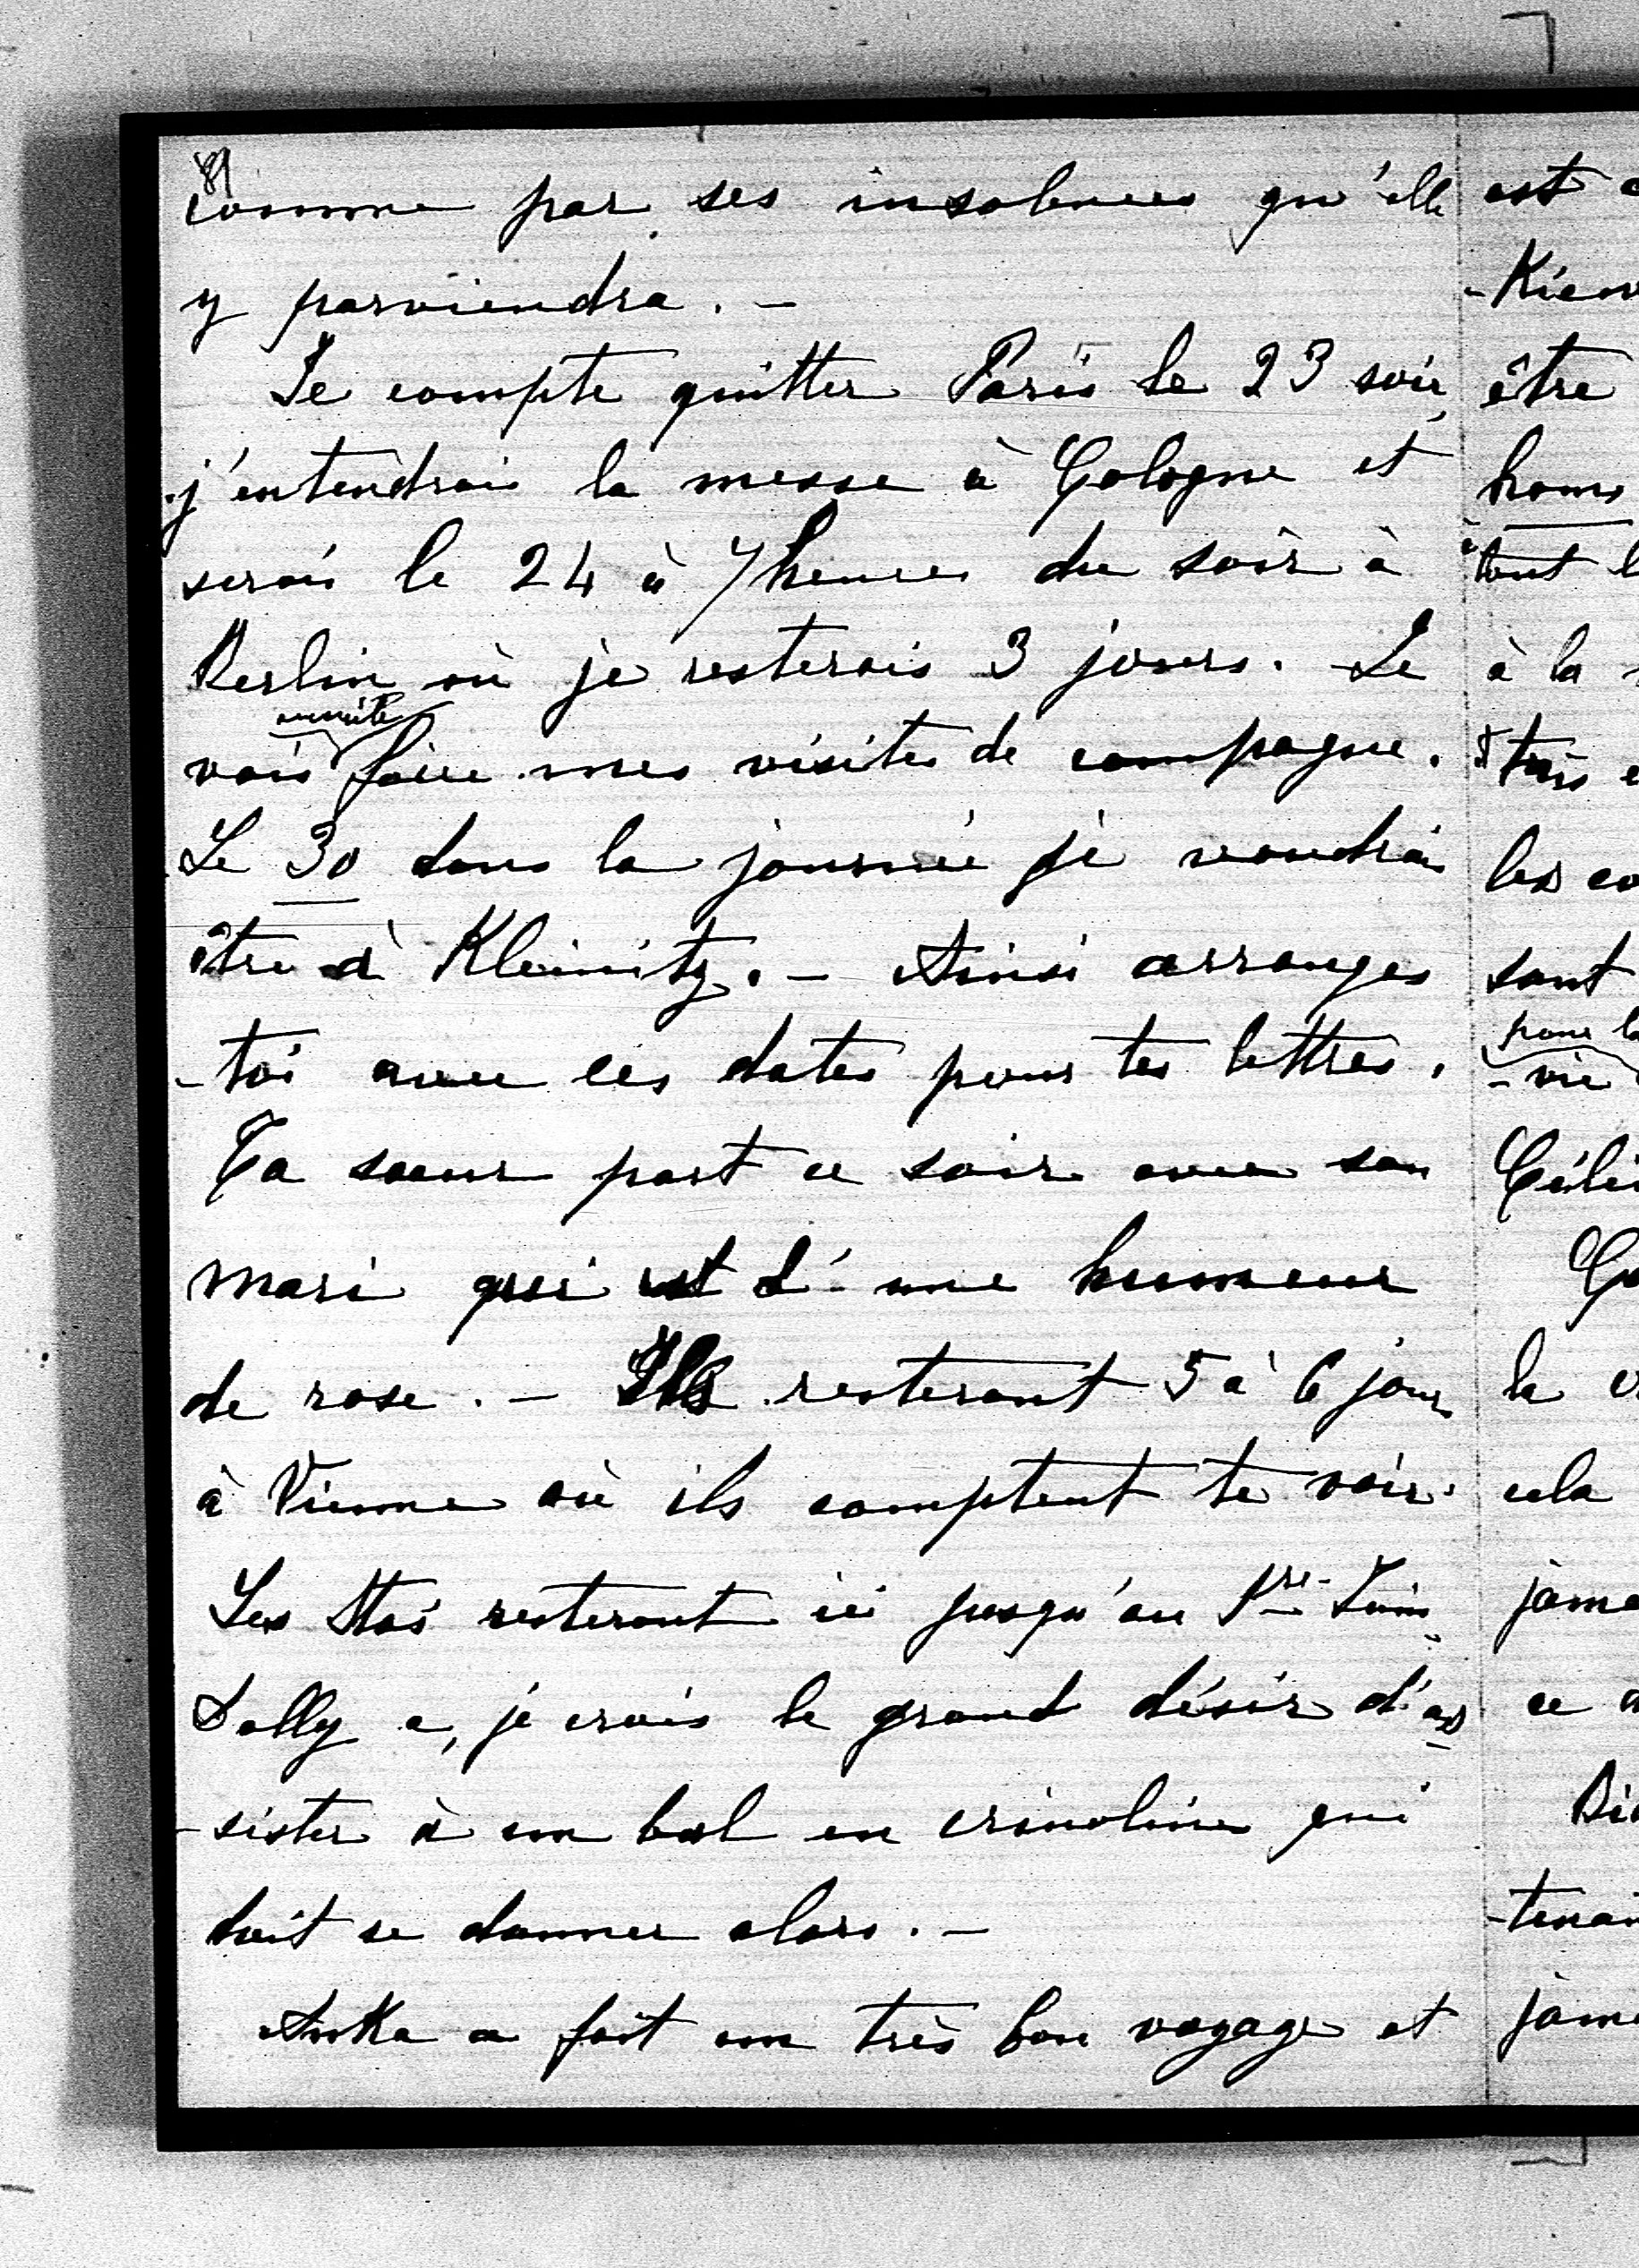 89
comme par ses insolences qu'elle
y parviendra. –
Je compte quitter Paris le 23 soir,
j'entendrais la messe à Cologne et
serais le 24 à 7 heures du soir à
Berlin où je resterais 3 jours. Je
ensuite
vais faire mes visites de campagne.
Le 30 dans la journée je voudrais
être à Kleinitz. – Ainsi arranges
-toi avec ces dates pour tes lettres.
Ta soeur part ce soir avec son
mari qui est d'une humeur
de rose. – Ils resteront 5 à 6 jours
à Vienne où ils comptent te voir.
Les Stas resteront ici jusqu'au 1re Juin
Dolly a, je crois le grand désir d'as
-sister à un bal en crinoline qui
doit se donner alors. –
Anka a fait un très bon voyage et
est
-Kiew
être
homs
tout
à la
très
les co
sont
pour la
-vie
Céli
Co
la
cela
jama
ce
Bi
-tenan
jama